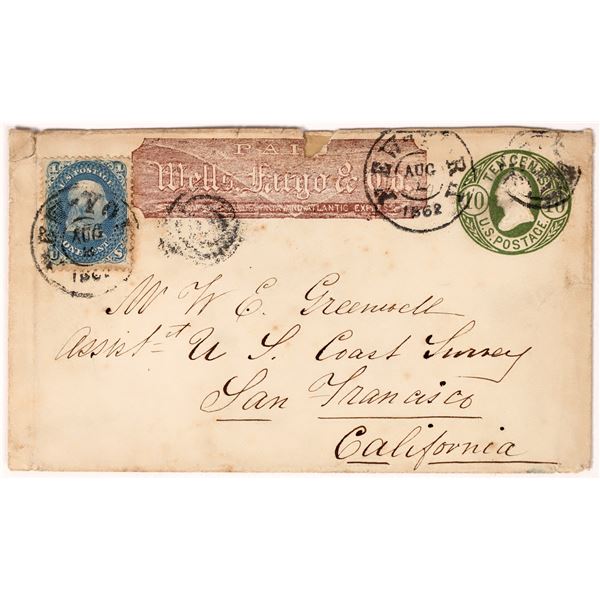 PAI
Wells, Fargo & Co.
ATLANTIC EXPR
U.S. POSTAGE
ONE CENT
AUG
1862
NEW YORK
AUG
1862
TEN CENTS
10 10
U.S. POSTAGE
Mr W. E. Greenwell
Assist-t U S Coast Survey
San Francisco
California